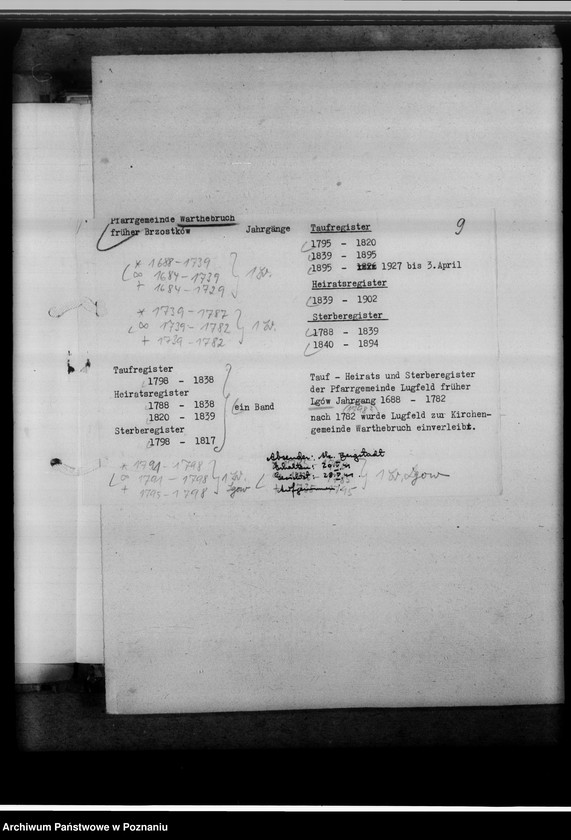 9
Pfarrgemeinde Warthebruch
früher Brzostków
Jahrgänge
Taufregister
1795 - 1820
1839 - 1895
1895 - 1927 bis 3.April
Heiratsregister
1839 - 1902
Sterberegister
1788 - 1839
1840 - 1894
* 1688-1739
∞ 1684-1739
+ 1684-1729
* 1739-1782
∞ 1739-1782
+ 1739-1782
Taufregister
1798 - 1838
Heiratsregister
1788 - 1838
1820 - 1839
Sterberegister
1798 - 1817
ein Band
Tauf - Heirats und Sterberegister
der Pfarrgemeinde Lugfeld früher
Lgów Jahrgang 1688 - 1782
nach 1782 wurde Lugfeld zur Kirchen-
gemeinde Warthebruch einverleibt.
* 1791-1798
∞ 1791-1798
+ 1795-1798
Lgow
Absender:
Erhalten:
Lgow
Archiwum Państwowe w Poznaniu